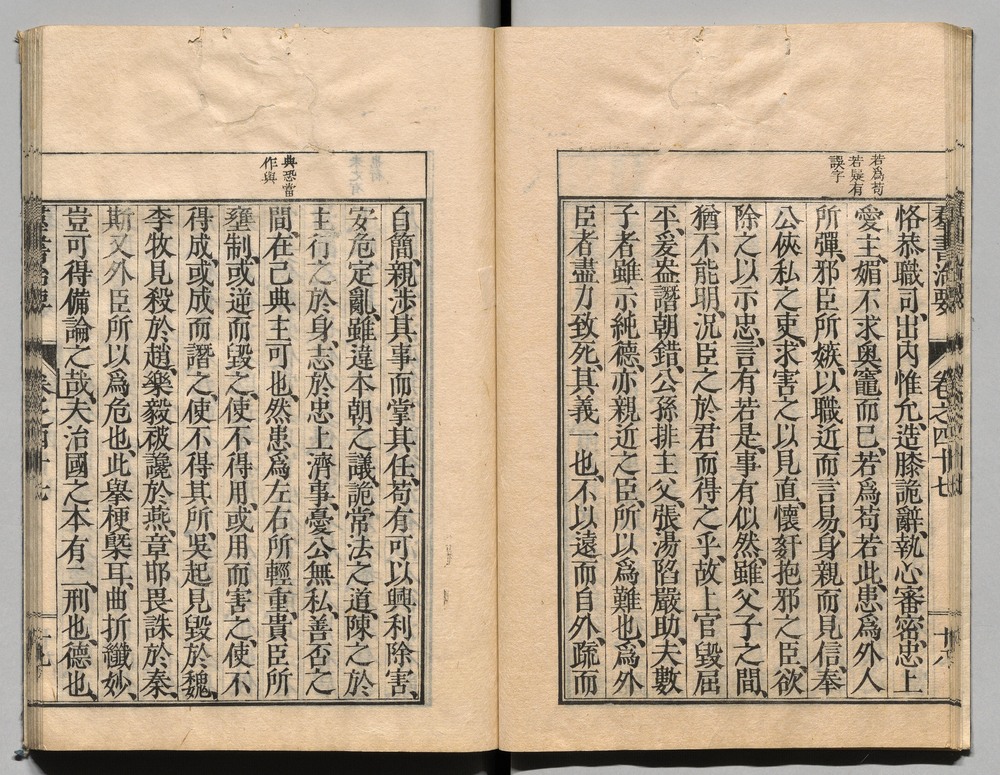 若爲苟
若疑有
誤字
羣書治要 卷之四十七 十八
恪恭職司、出內惟允、造膝詭辭、執心審密、忠上
愛主、媚不求奧竈而已、若爲苟若此、患爲外人
所彈、邪臣所嫉、以職近而言易、身親而見信、奉
公俠私之吏、求害之以見直、懷姧抱邪之臣、欲
除之以示忠、言有若是、事有似然、雖父子之間、
猶不能明、況臣之於君而得之乎、故上官毀屈
平、爰盎譖朝錯、公孫排主父、張湯陷嚴助、夫數
子者雖示純德、亦親近之臣、所以爲難也、爲外
臣者盡力致死、其義一也、不以遠而自外、疏而
典恐當
作與
自簡、親涉其事而掌其任、苟有可以興利除害、
安危定亂、雖違本朝之議、詭常法之道、陳之於
主、行之於身、志於忠上濟事、憂公無私、善否之
間、在己典主可也、然患爲左右所輕重、貴臣所
壅制、或逆而毀之、使不得用、或用而害之、使不
得成、或成而譖之、使不得其所、吳起見毀於魏、
李牧見殺於趙、樂毅破讒於燕、章邯畏誅於秦、
斯又外臣所以爲危也、此舉梗槩耳、曲折纖妙、
豈可得備論之哉、夫治國之本有二、刑也、德也、
羣書治要 卷之四十七 十九